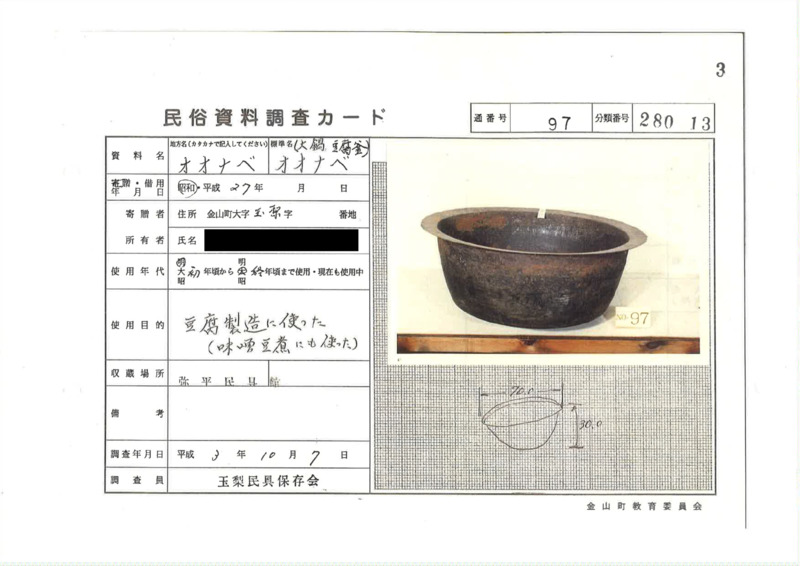 3
民俗資料調査カード
通番号 97 分類番号 280 13
資料名 地方名(カタカナで記入してください) オオナベ 標準名(大鍋 豆腐釜) オオナベ
寄贈・借用年月日 昭和・平成 27年 月 日
寄贈者 住所 金山町大字玉梨字 番地
所有者 氏名
使用年代 明大昭 初年頃から 明大昭 終年頃まで使用・現在も使用中
使用目的 豆腐製造に使った
(味噌豆煮にも使った)
収蔵場所 弥平民具館
備考
調査年月日 平成 3年 10月 7日
調査員 玉梨民具保存会
No. 97
70.0
30.0
金山町教育委員会